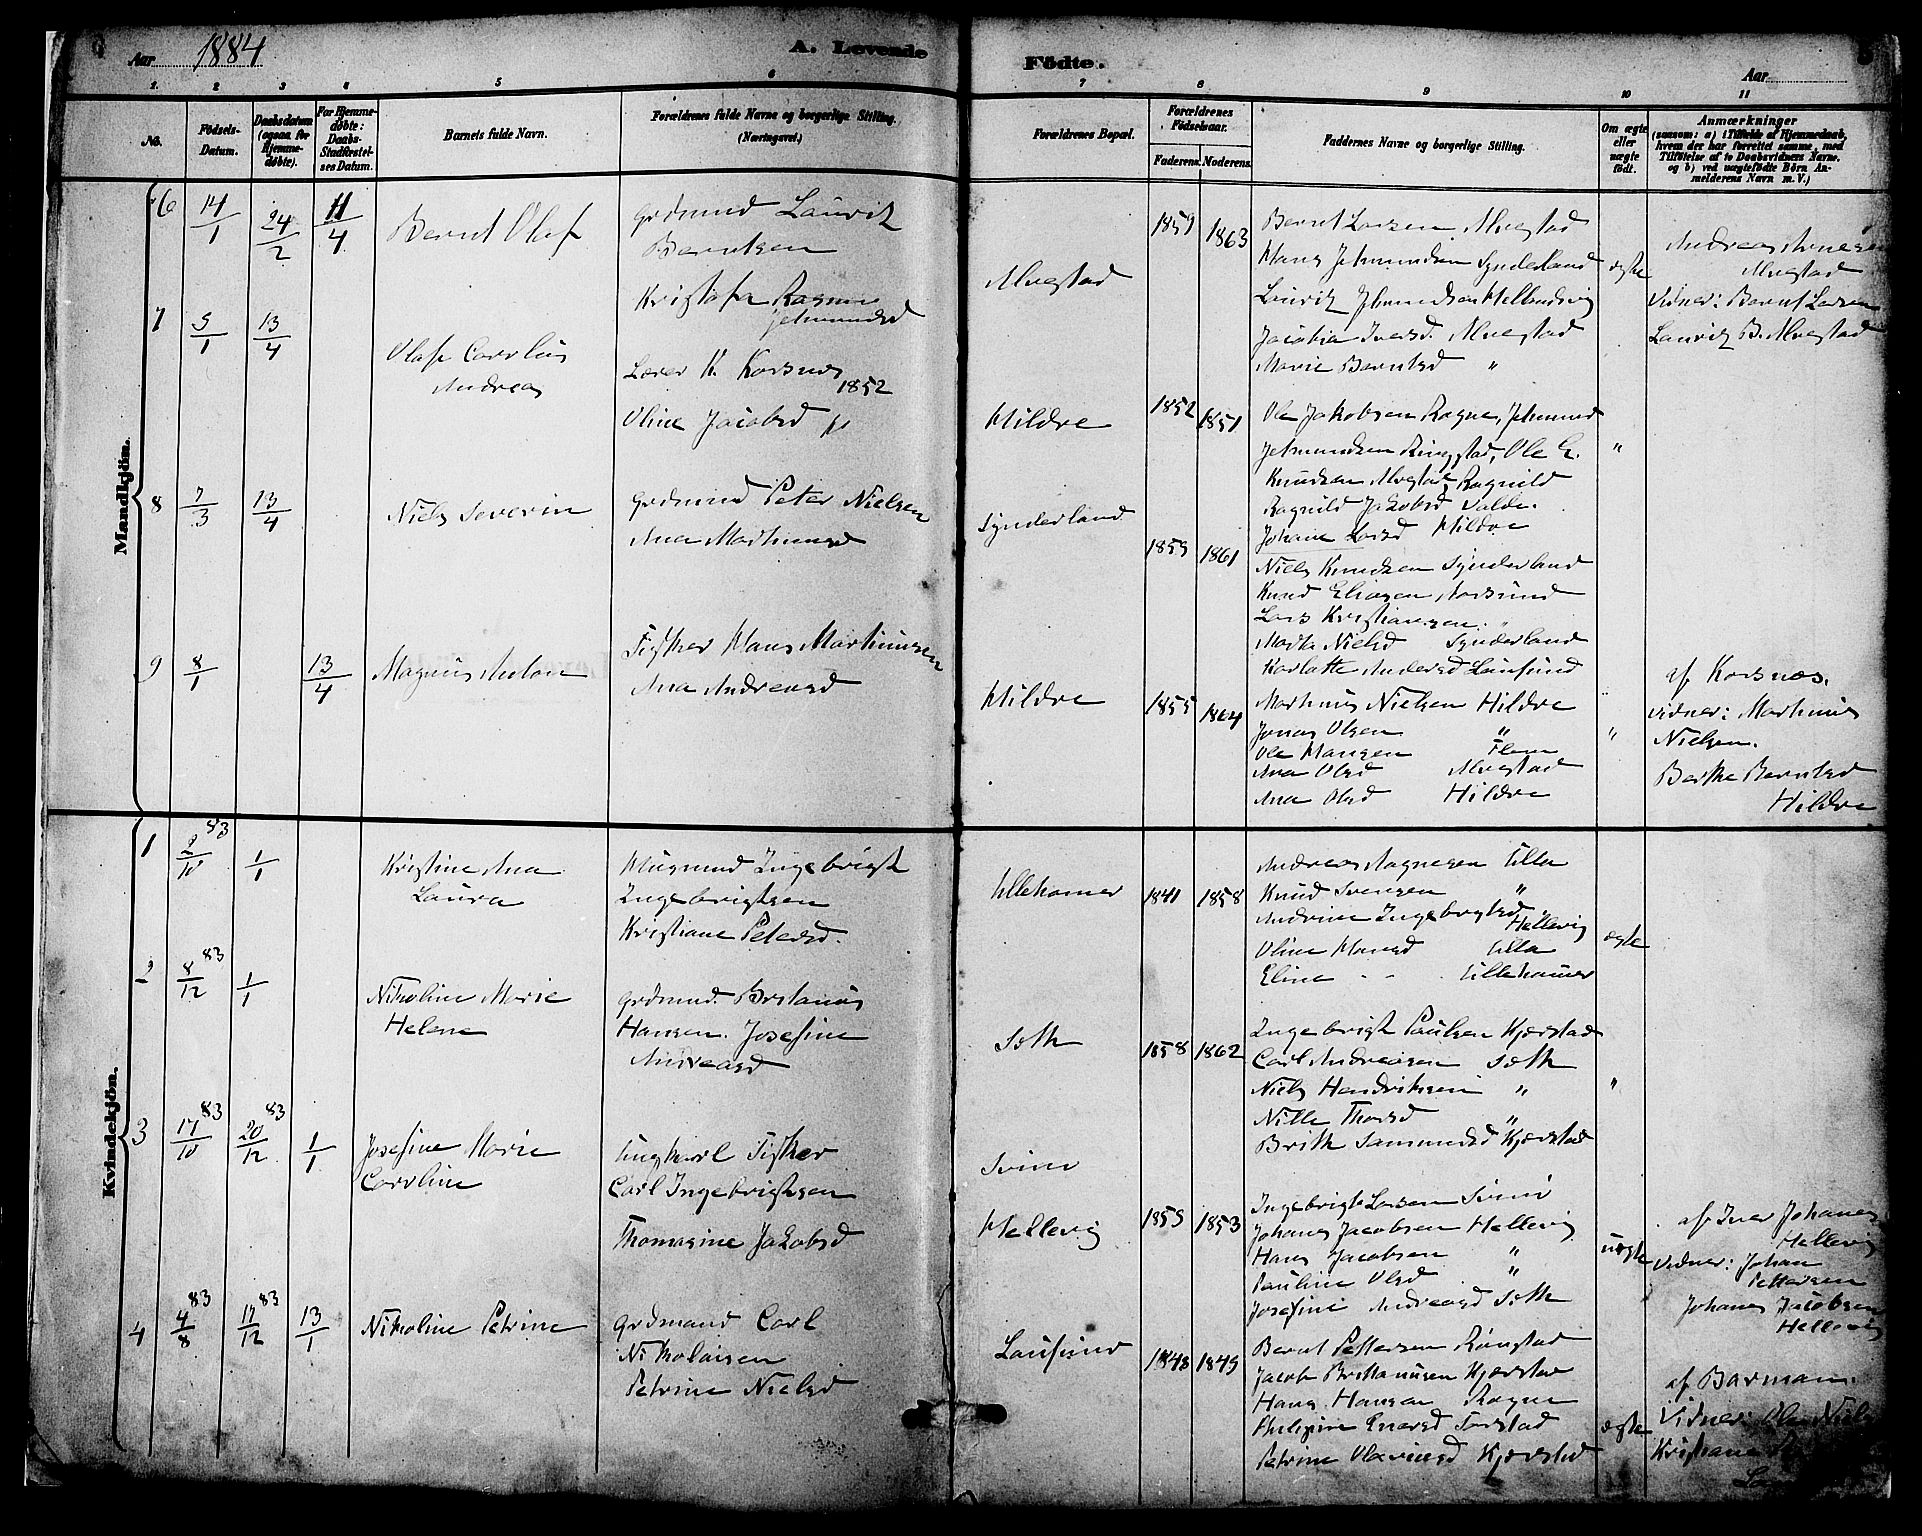 Aar 1884
A. Levende
Födte.
Aar
1. 2 3 4 5 6
7 8 9 10 11
No.
Födsels-
Datum.
Daabsdatum
(ogsaa for
Hjemme-
døbte).
For Hjemme-
døbte:
Daabs-
Stadfæstel-
ses Datum.
Barnets fulde Navn.
Forældrenes fulde Navne og borgerlige Stilling.
(Næringsvei.)
Forældrenes Bopæl.
Forældrenes
Födselsaar.
Faderens. Moderens.
Faddernes Navne og borgerlige Stilling.
Om ægte
eller
uægte
födt.
Anmærkninger
(saasom: a) i Tilfælde af Hjemmedaab,
hvem der har forrettet samme, med
Tilföielse af to Daabsvidners Navne,
og b) ved uægtefödte Börn An-
melderens Navn m. V.)
Mandkjön.
6 14/1 24/2 11/4
Bernt Olaf
Grdmand Lauritz
Berntsen
Kristofa Rasmus
Jetmundsd
Alvestad
1859 1863
Bernt Larsen Alvestad
Hans Jetmundsen Synderland
Lauritz Jetmundsen Hellevig
Jacobia Iversd. Alvestad
Marie Berntsd "
ægte
Andreas Arnesen
Alvestad
Vidner: Bernt Larsen
Lauritz B. Alvestad
7 5/1 13/4
Olaf Carolus
Andreas
Lærer K. Korsnes
1852
Oline Jacobsd
Hildre
1852 1851
Ole Jakobsen Rogne, Jetmund
Jetmundsen Ringstad, Ole E.
Knudsen Alvestad Ragnild
Ragnild Jakobsd
Johane Larsd Hildre
"
8 7/3 13/4
Niels Severin
Grdmand Peter Nielsen
Ana Martinusd
Synderland
1859 1861
Niels Knudsen Synderland
Knud Eliasen
Lars Kristiansen "
Marta Nielsd Synderland
Karlotte Andersd Lausund
9 8/1 13/4
Magnus Anton
Fisker Hans Martinusen
Ana Andreasd
Hildre
1855 1864
Martinus Nielsen Hildre
Jonas Olsen "
Ole Hansen Flem
Ana Olsd Alvestad
Ana Olsd Hildre
"
af Korsnæs.
Vidner: Martinus
Nielsen.
Berthe Berntsd
Hildre
Kvindekjön.
1 2/10 83 1/1
Kristine Ana
Laura
Husmand Ingebrigt
Ingebrigtsen
Kristiane Petersd.
Ullehamer
1841 1858
Andreas Magnesen Ulla
Knud Svensen "
Andrine Ingebrigtsd
Hellevig
Oline Hansd Ulla
Eline " Ullehamer
ægte
2 8/12 83 1/1
Nikoline Marie
Helene
Grdmand. Britanus
Hansen. Josefine
Andreasd
Søth
1858 1862
Ingebrigt Paulsen Kjærstad
Carl Andreasen Søth
Niels Hendriksen "
Nille Thorsd "
Brith Samundsd Kjærstad
"
3 17/10 83 20/12 83 1/1
Josefine Marie
Caroline
Ungkarl Fisker
Carl Ingebrigtsen
Thomasine Jakobsd
Svinø
Hellevig
1859 1853
Ingebrigt Larsen Svinø
Johanes Jacobsen Hellevig
Hans Jacobsen "
Pauline Olsd "
Josefine Andreasd Søth
uægte
af Iver Johanes
Hellevig
Vidner: Johan
Pettersen
Johanes Jacobsen
Hellevig
4 4/8 83 17/12 83 13/1
Nikoline Petrine
Grdmand Carl
Nikolaisen
Petrine Nielsd
Lausund
1848 1849
Bernt Pettersen Rønstad
Jacob Brittanusen Kjærstad
Hans Hansen Rogne
Petrine Olavinusd Kjærstad
ægte
af Barman.
Vidner: Ole Niels
Kristiane